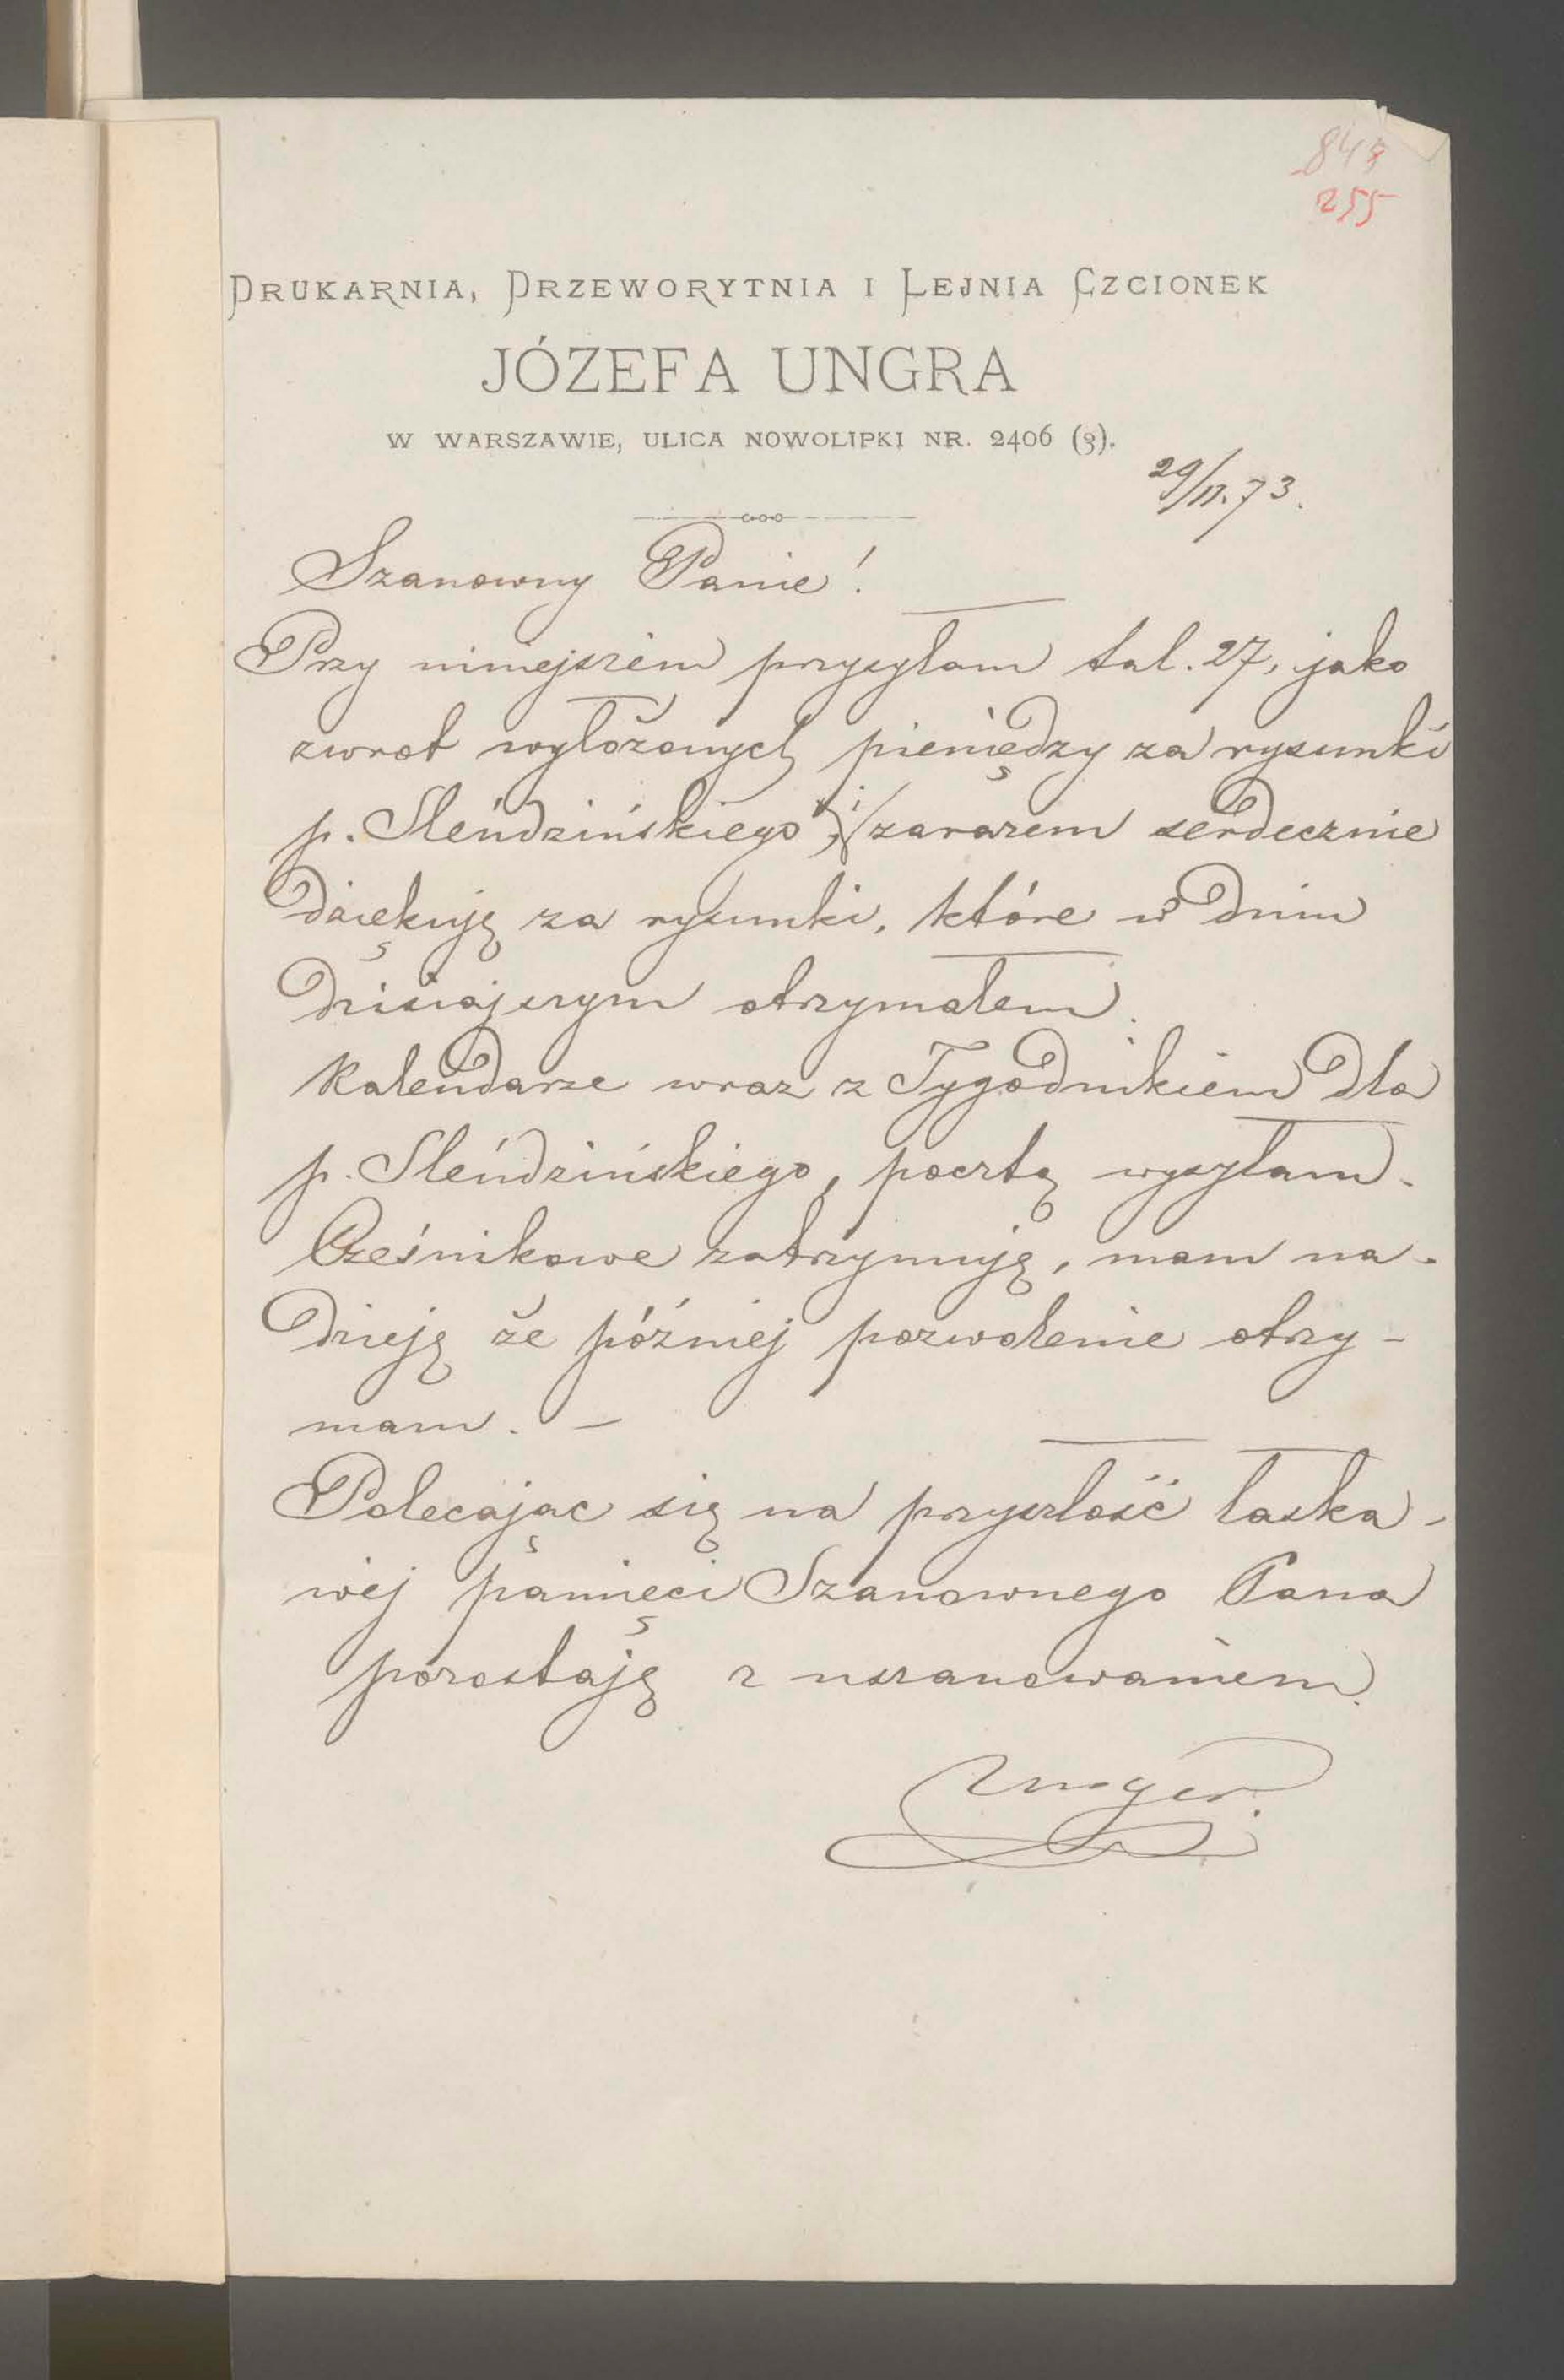 255
DRUKARNIA, DRZEWORYTNIA I LEJNIA CZCIONEK
JÓZEFA UNGRA
W WARSZAWIE, ULICA NOWOLIPKI NR. 2406 (3).
29/11.73.
Szanowny Panie!
Przy niniejszem przysyłam tal. 27, jako
zwrot wyłożonych pieniędzy za rysunki
p. Sleńdzińskiego, i zarazem serdecznie
dziękuję za rysunki, które w dniu
dzisiajszym otrzymałem.
Kalendarze wraz z Tygodnikiem dla
p. Sleńdzińskiego, pocztą wysyłam.
Cześnikowe zatrzymuję, mam na-
dzieję że póżniej pozwolenie otrzy-
mam. –
Polecając się na przyszłość łaska-
wéj pamięci Szanownego Pana
pozostaję z uszanowaniem.
Unger.